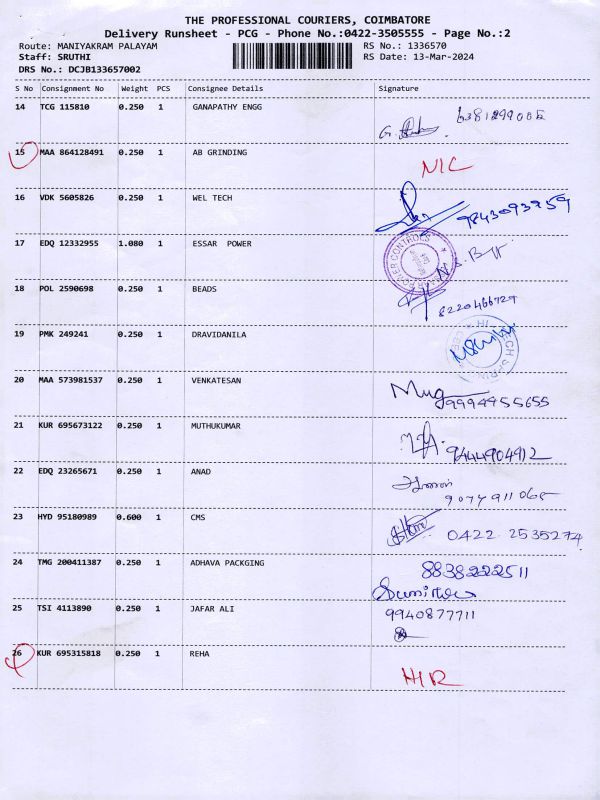 THE PROFESSIONAL COURIERS, COIMBATORE
Delivery Runsheet - PCG - Phone No.:0422-3505555 - Page No.:2
Route: MANIYAKRAM PALAYAM
RS No.: 1336570
Staff: SRUTHI
RS Date: 13-Mar-2024
DRS No.: DCJB133657002
S No Consignment No Weight PCS Consignee Details Signature
14 TCG 115810 0.250 1 GANAPATHY ENGG
15 MAA 864128491 0.250 1 AB GRINDING
NIC
16 VDK 5605826 0.250 1 WEL TECH
9843093259
17 EDQ 12332955 1.080 1 ESSAR POWER
POWER CONTROLS
18 POL 2590698 0.250 1 BEADS
8220466727
19 PMK 249241 0.250 1 DRAVIDANILA
20 MAA 573981537 0.250 1 VENKATESAN
9994955655
21 KUR 695673122 0.250 1 MUTHUKUMAR
9444904912
22 EDQ 23265671 0.250 1 ANAD
9074911065
23 HYD 95180989 0.600 1 CMS
0422 2535274
24 TMG 200411387 0.250 1 ADHAVA PACKGING
8838222511
25 TSI 4113890 0.250 1 JAFAR ALI
9940877711
26 KUR 695315818 0.250 1 REHA